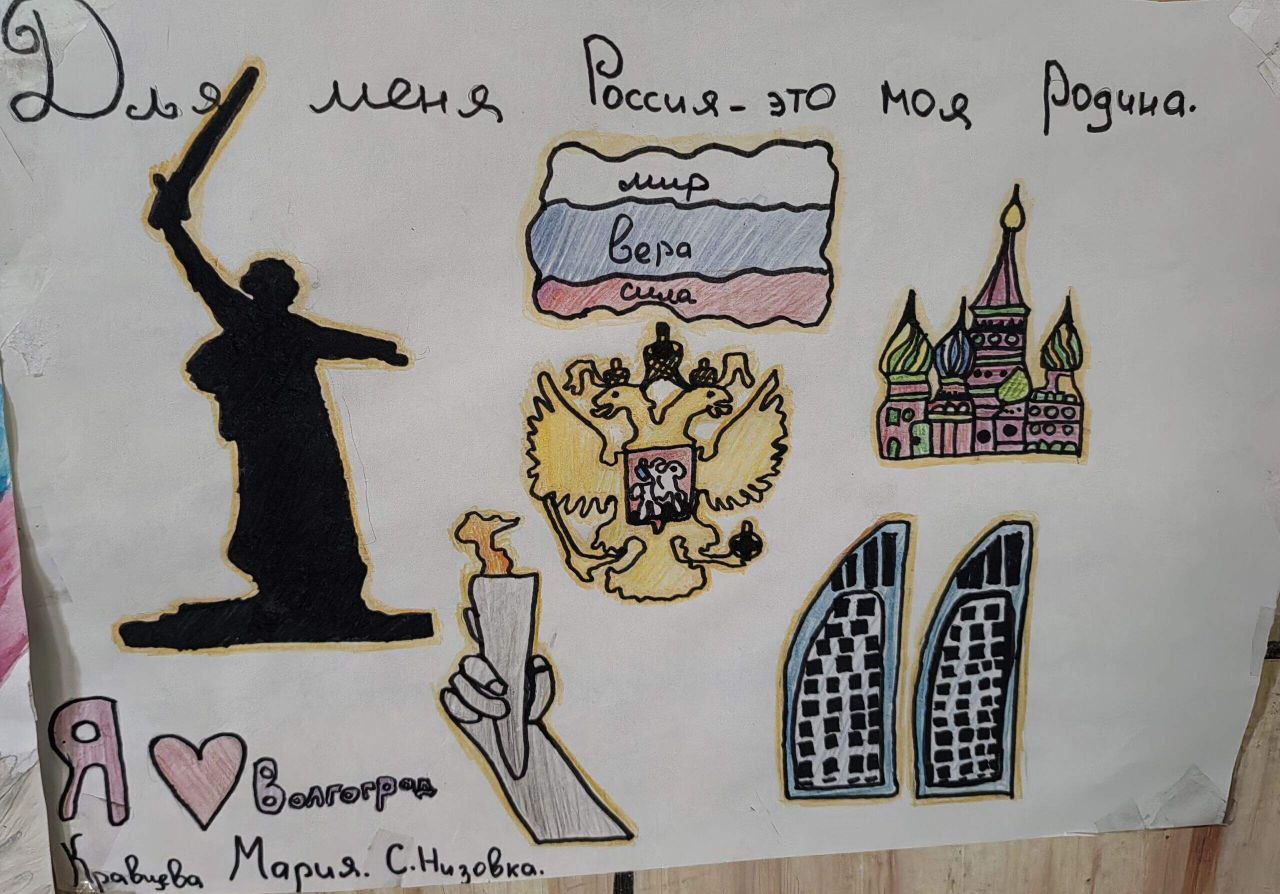 Для меня Россия - это моя Родина.
мир
вера
сила
Я ♥ Волгоград
Кравцева Мария. С.Низовка.